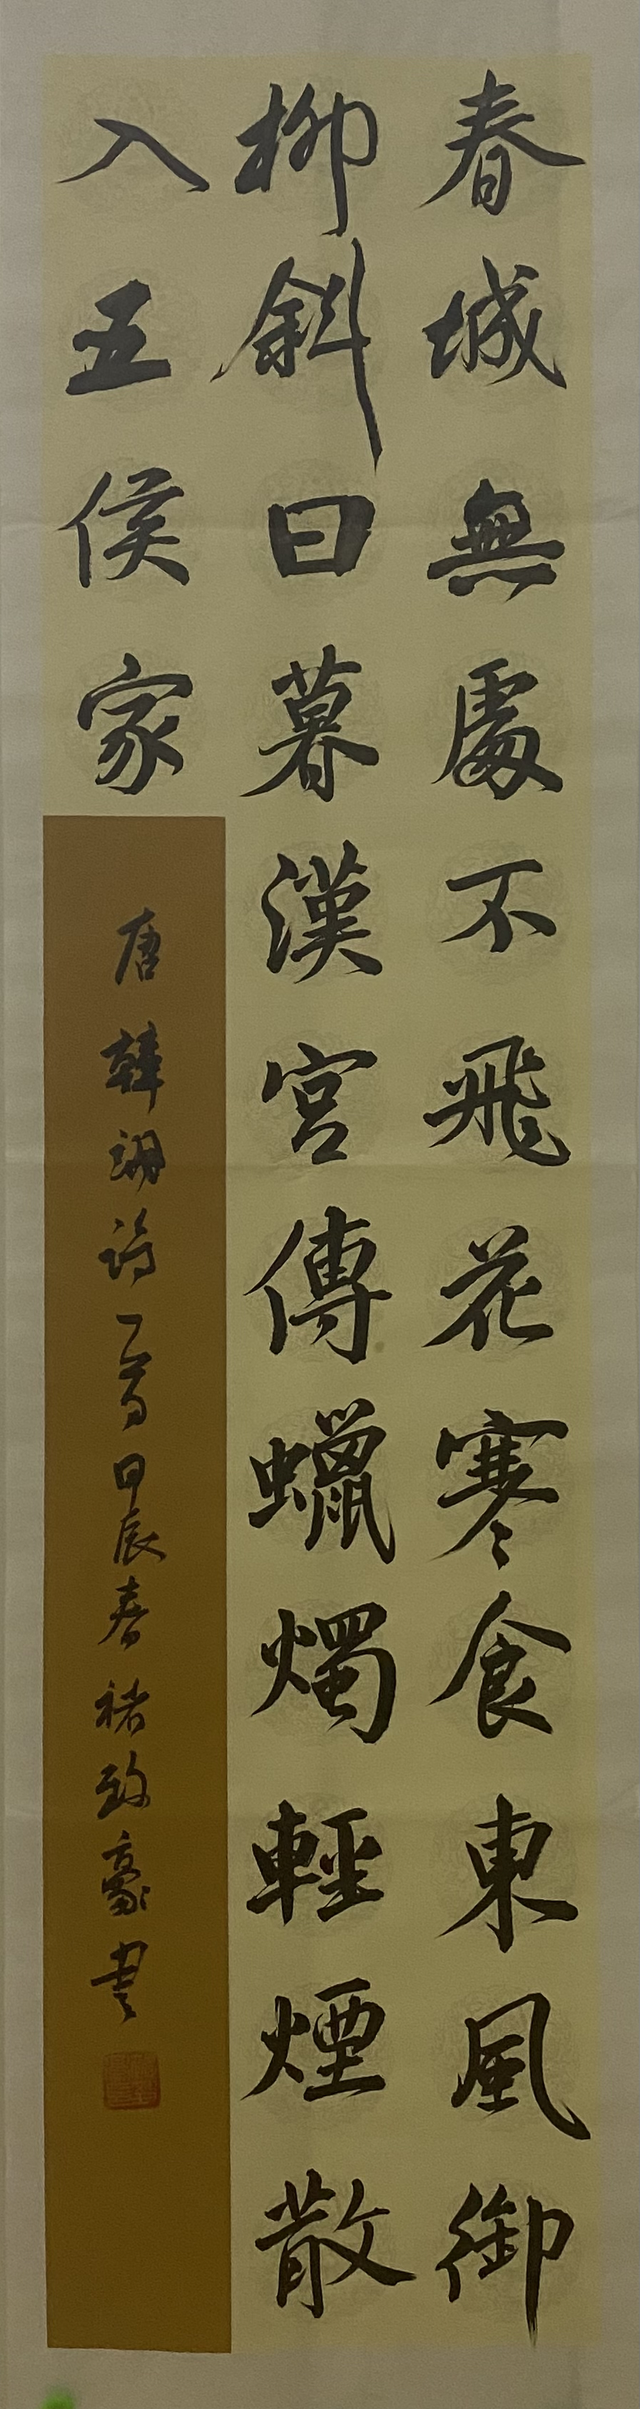 春城無處不飛花寒食東風御
柳斜日暮漢宮傳蠟燭輕煙散
入五侯家
唐韓翃詩一首甲辰春褚致豪書